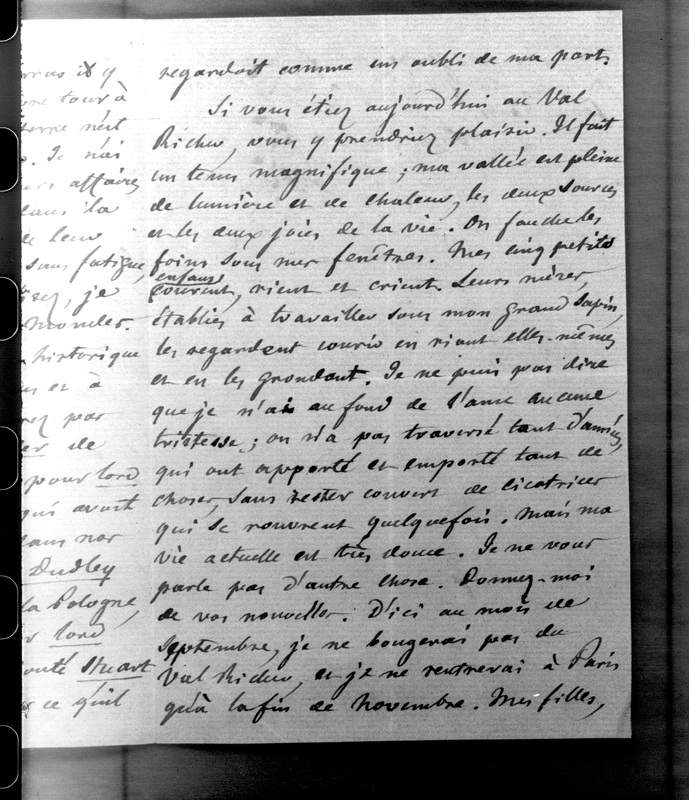 regardoit comme un oubli de ma part.
Si vous étiez aujourd'hui au Val
Richer, vous y prendriez plaisir. Il fait
un tems magnifique ; ma vallée est pleine
de lumière et de chaleur, les deux sources
et les deux joies de la vie. On fauche les
foins sous mes fenêtres. Mes cinq petits
enfans
courent, rient et crient. Leurs mères,
établies à travailler sous mon grand sapin,
les regardent courir en riant elles-mêmes
et en les grondant. Je ne puis pas dire
que je n'ai au fond de l'ame aucune
tristesse ; on n'a pas traversé tant d'années,
qui ont apporté et emporté tant de
choses, sans rester couvert de cicatrices
qui se rouvrent quelquefois. Mais ma
vie actuelle est très douce. Je ne vous
parle pas d'autre chose. Donnez-moi
de vos nouvelles. D'ici au mois de
Septembre, je ne bougerai pas du
Val Richer, et je ne rentrerai à Paris
qu'à la fin de Novembre. Mes filles,
il y
tour à
n'est
Je n'ai
affaires
la
de leur
sans fatigue,
je
historique
et à
par
de
pour lord
qui avoit
Dudley
la Pologne,
lord
Stuart
ce qu'il